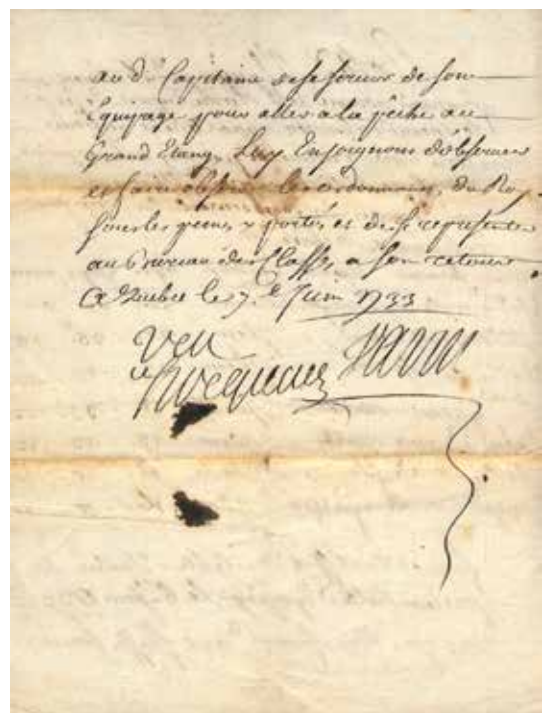 au d. Capitaine de se servir de son
Equipage pour aller a la pêche au
Grand Etang, Luy Enjoignons d'observer
et faire observer les ordonnances du Roy
sous les peines y portées et de se representer
au Bureau des Classes a son retour
A Quebec le 7.e Juin 1733
Veu
hocquart Varin